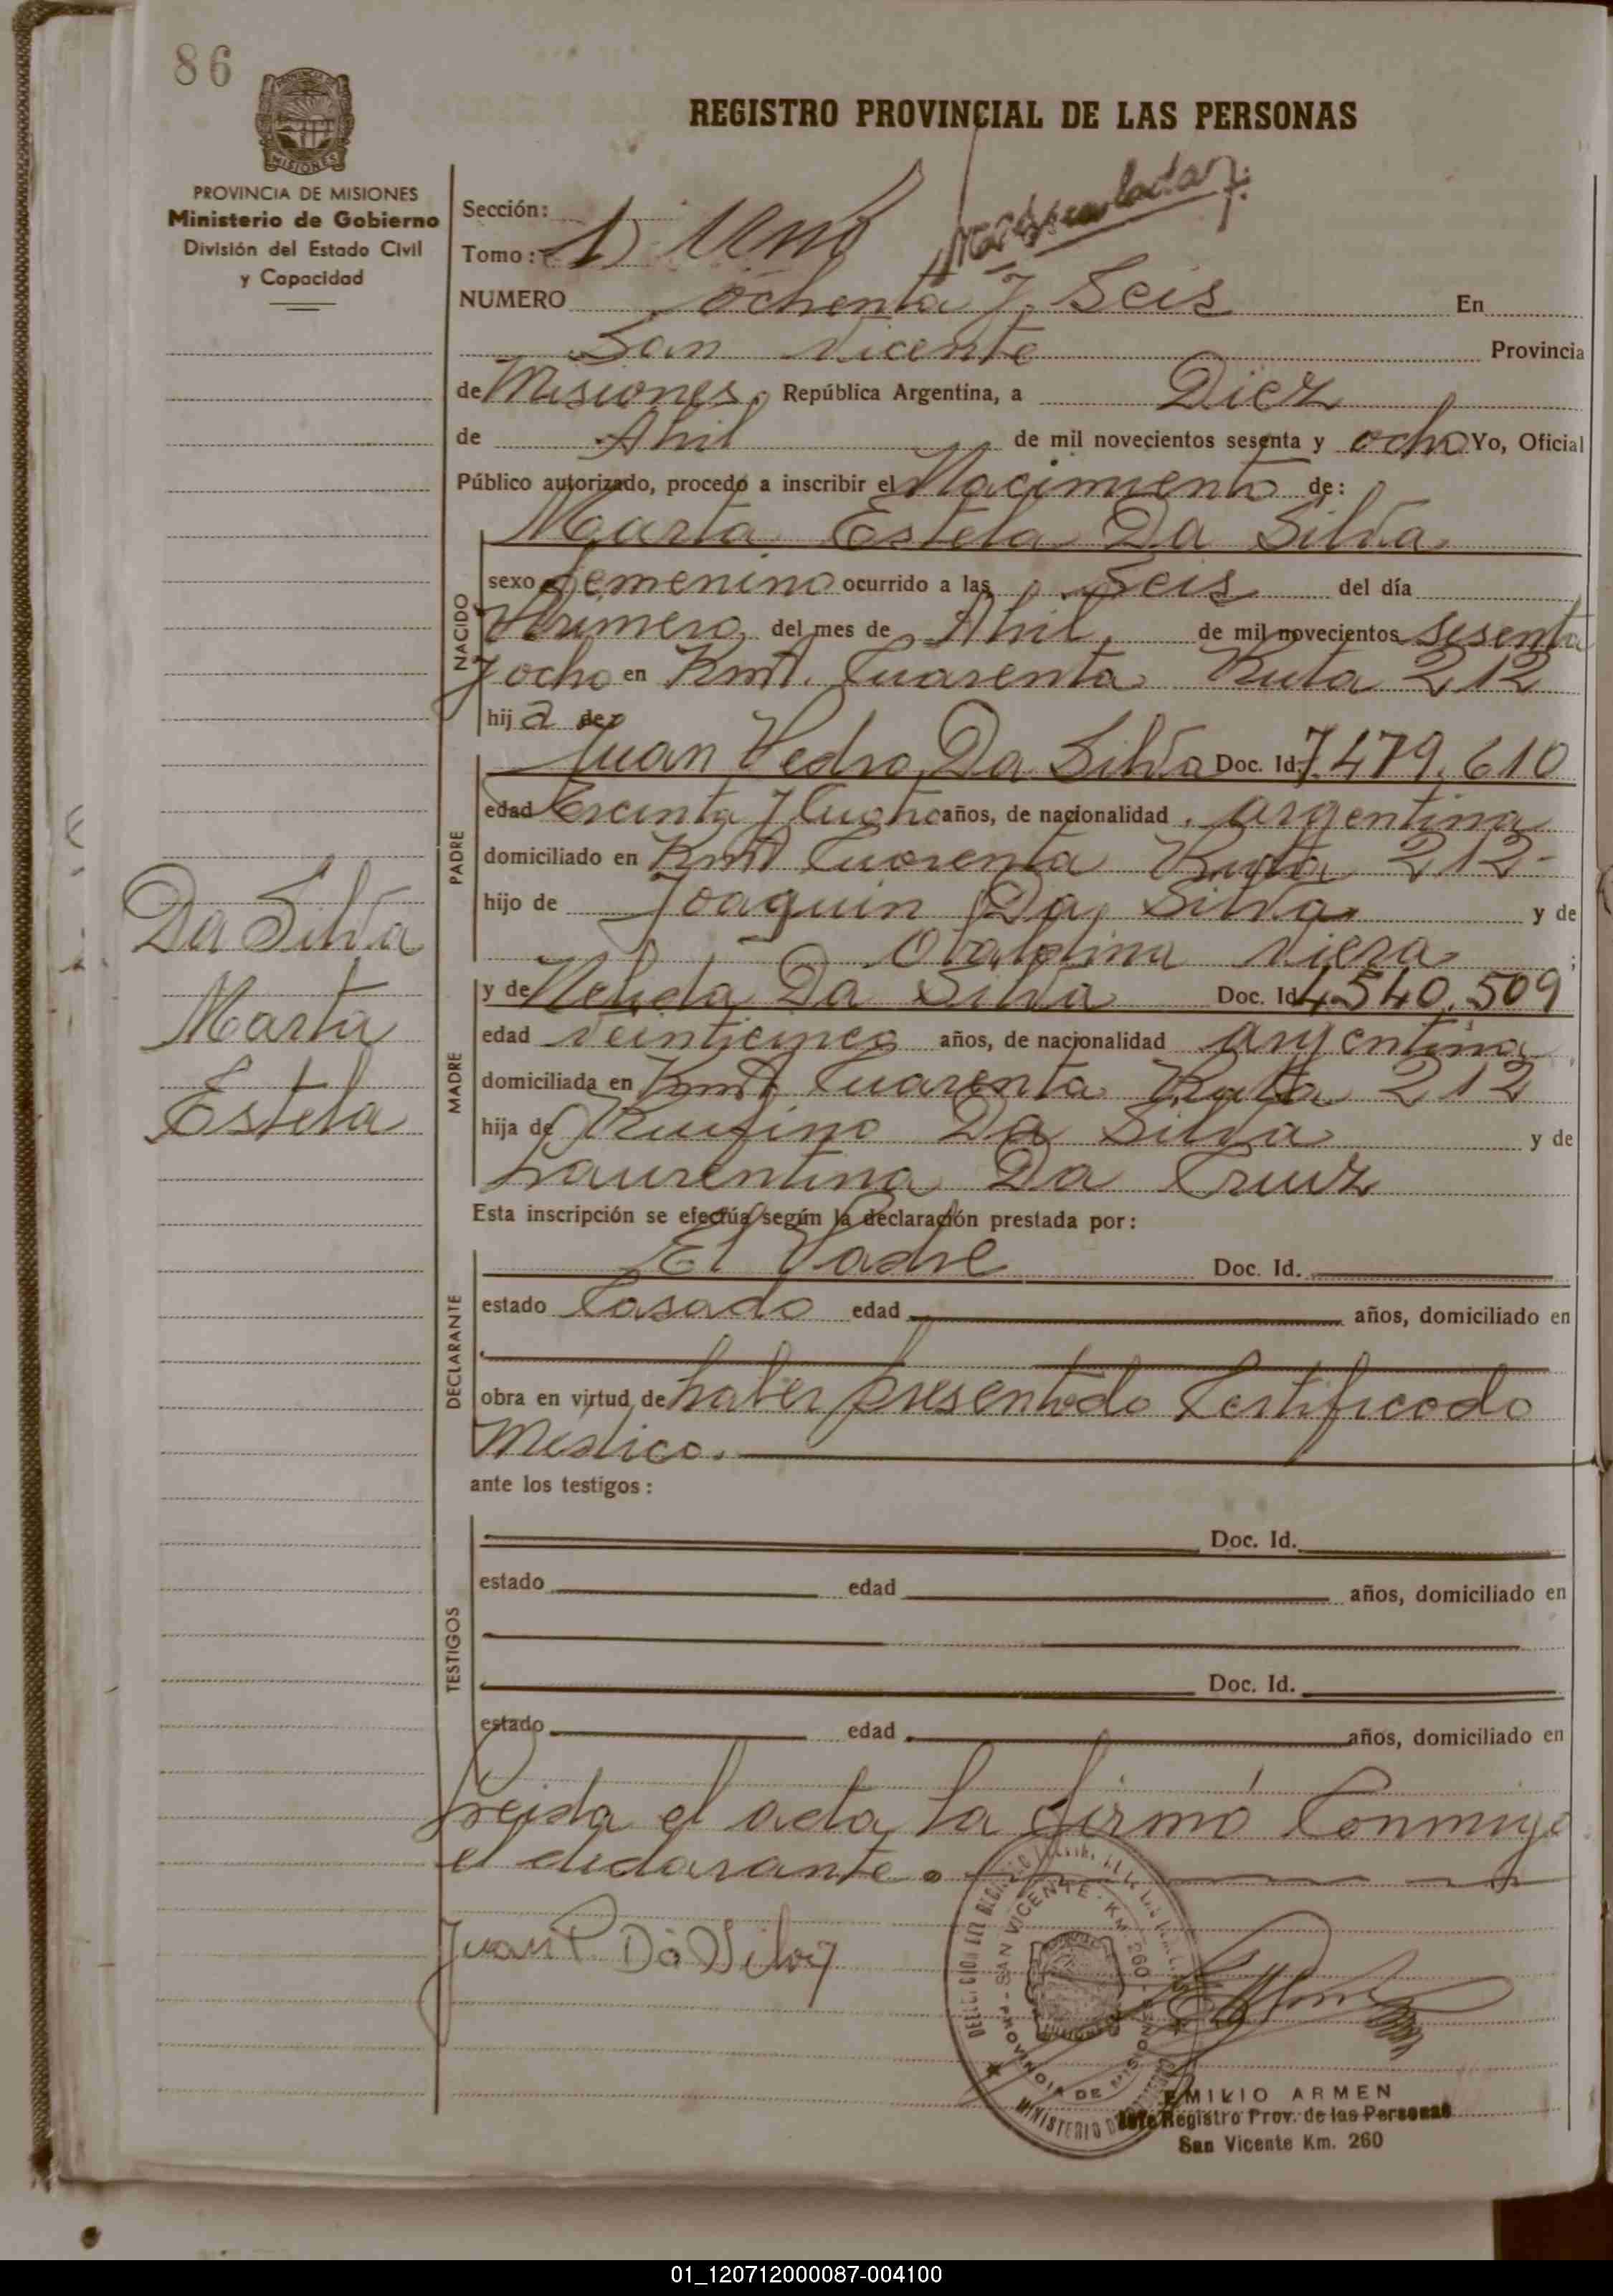 86
REGISTRO PROVINCIAL DE LAS PERSONAS
MISIONES
PROVINCIA DE MISIONES
Ministerio de Gobierno
División del Estado Civil
y Capacidad
Sección:
Tomo: 1) Uno
NUMERO ochenta y Seis En
San Vicente Provincia
de Misiones, República Argentina, a Diez
de Abril de mil novecientos sesenta y ocho Yo, Oficial
Público autorizado, procedo a inscribir el Nacimiento de:
Marta Estela Da Silva
NACIDO
sexo femenino ocurrido a las Seis del día
Primero del mes de Abril de mil novecientos sesenta
y ocho en Kmt. Cuarenta Ruta 212
hija de
PADRE
Juan Pedro Da Silva Doc. Id. 7.479.610
edad treinta y cuatro años, de nacionalidad argentina
domiciliado en Kmt Cuarenta Ruta 212-
hijo de Joaquin Da Silva y de
Viera ;
MADRE
y de Nelida Da Silva Doc. Id. 4.540.509
edad veinticinco años, de nacionalidad argentina
domiciliada en Kmt Cuarenta Ruta 212
hija de Rufino Da Silva y de
Laurentina Da Cruz
Da Silva
Marta
Estela
Esta inscripción se efectúa según la declaración prestada por:
DECLARANTE
El Padre Doc. Id.
estado Casado edad años, domiciliado en
obra en virtud de haber presentado Certificado
Medico.
ante los testigos:
TESTIGOS
Doc. Id.
estado edad años, domiciliado en
Doc. Id.
estado edad años, domiciliado en
Leida el acta la firmó Conmigo
el declarante.
Juan P. Da Silva
SAN VICENTE - KM 260
PROVINCIA DE MISIONES
EMILIO ARMEN
Jefe Registro Prov. de las Personas
San Vicente Km. 260
01_120712000087-004100